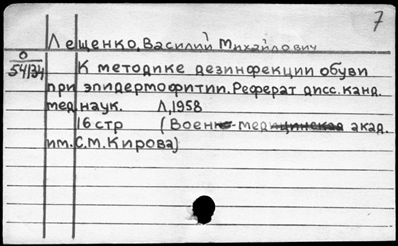 7
Лещенко, Василий Михайлович
О
54/34
К методике дезинфекции обуви
при эпидермофитии. Реферат дисс. канд.
мед. наук. Л, 1958
16 стр (Воен.-медицинская акад.
им. С.М. Кирова)